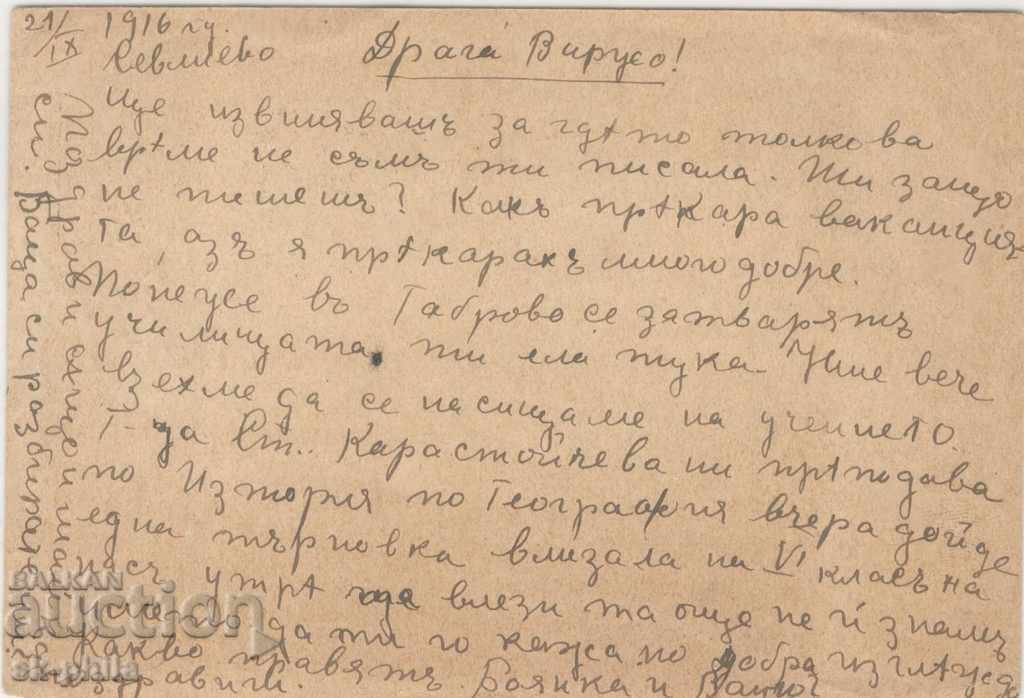 21/IX 1916 гд.
Севлиево
Драга Вирусо!
Ще извиняващъ за гдѣто толкова
врѣме не съмъ ти писала. Ти защо
не пишешъ? Какъ прѣкара ваканция-
та, азъ я прѣкарахъ много добре.
Понеже въ Габрово се затварятъ
училищата, ти ела тука. Ние вече
взехме да се насищаме на учението.
Г-ца Ст. Карастойчева ни прѣподава
по История по География вчера дойде
една търновка влизала на VI класъ на
насъ утрѣ ще влези та още не ѝ знамъ
да ти го кажа по добра изглѣжд
Какво правятъ Боянка и
Поздрави
си. Ваша си разбира
BALKAN
auction
sk-phila